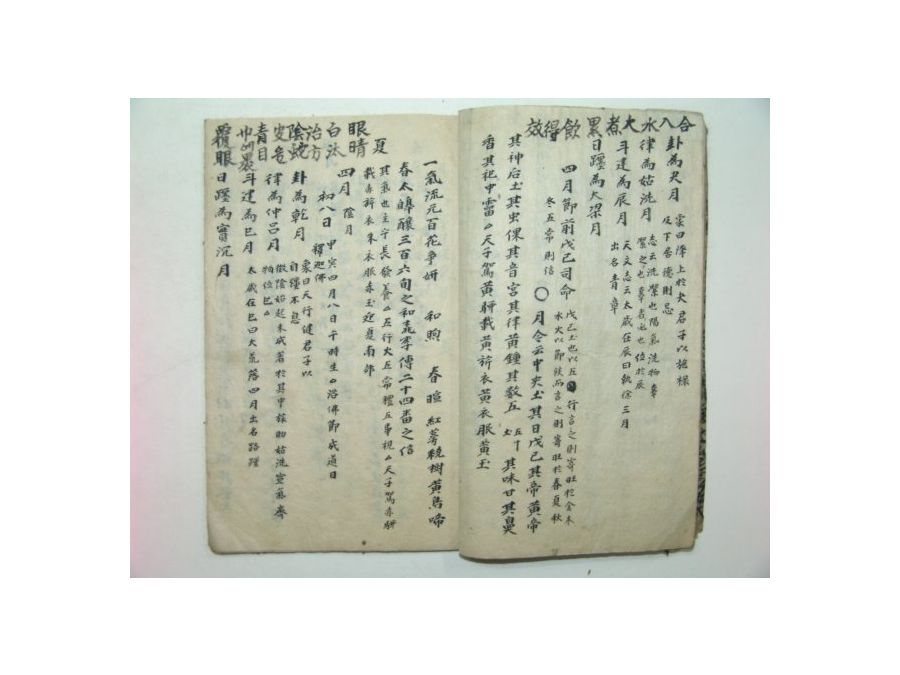 合八水大煮累飲得效
卦為夬月
象曰澤上於天君子以施祿
及下居德則忌
律為姑洗月
志云洗潔也陽氣洗物辜
潔之也 位於辰
斗建為辰月
天文志云太歲在辰曰執徐三月
出名青章
日躔為大梁月
四月節前戊己司命
戊己土也以五行言之則寄旺於金木
水火以節候而言之則寄旺於春夏秋
冬五常則信
〇月令云中央土其日戊己其帝黃帝
其神后土其虫倮其音宮其律黃鍾其數五
其味甘其臭
香其祀中霤 天子駕黃騂載黃旂衣黃衣服黃玉
一氣流元百花爭妍 和煦 春暄 紅萼繞樹黃鳥啼
春太皞釀三百六旬之和 傳二十四番之信
夏
其氣也主宁長發養 五行火五常禮五事視 天子駕赤騂
載赤旂衣朱衣服赤玉迎夏南郊
四月 陰月
初八日
甲寅四月八日午時生 浴佛節成道日
釋迦佛
卦為乾月
象曰天行健君子以
自彊不息
律為仲呂月
微陰始起未成著於其中旅助姑洗宣氣齊
物位巳
斗建為巳月
太歲在巳曰大荒落四月出名路踵
日躔為實沉月
眼晴
白汰
治方
陰蛇
青目
覆眼